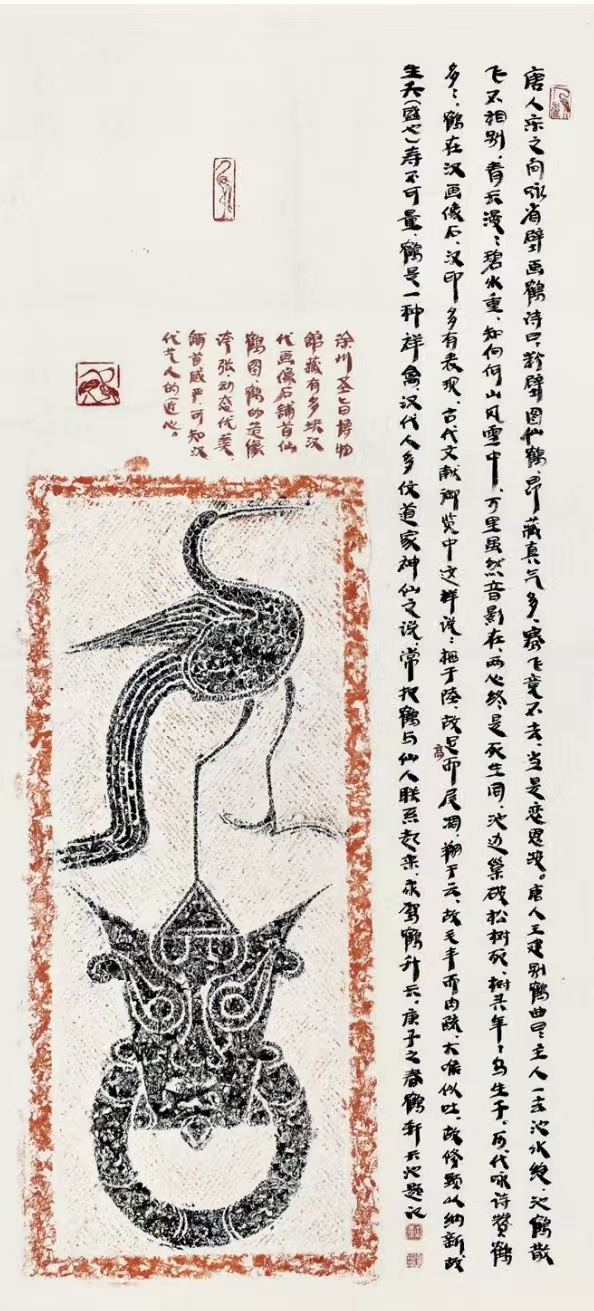 唐人宋之问咏省壁画鹤诗曰、粉壁图仙鹤、昂藏真气多、骞飞竟不去、当是恋恩波。唐人王建别鹤曲曰主人一去池水绝、池鹤散
飞不相别、青天漫〻碧水重、知向何山风雪中、万里虽然音影在、两心终是死生同、池边巢破松树死、树头年〻乌生子、历代咏诗赞鹤
多〻、鹤在汉画像石、汉印多有表现、古代文献御览中这样说：栖于陆、故足高而尾凋、翔于云、故毛丰而肉疏、大喉以吐、故修颈以纳新、故
生天(盛也)寿不可量、鹤是一种祥禽、汉代人多仗道家神仙之说、常把鹤与仙人联系起来、乘驾鹤升云。庚子之春鹤轩云池题记
徐州圣旨博物
馆藏有多块汉
代画像石铺首仙
鹤图、鹤的造像
夸张、动态优美
铺首威严、可知汉
代艺人的匠心。